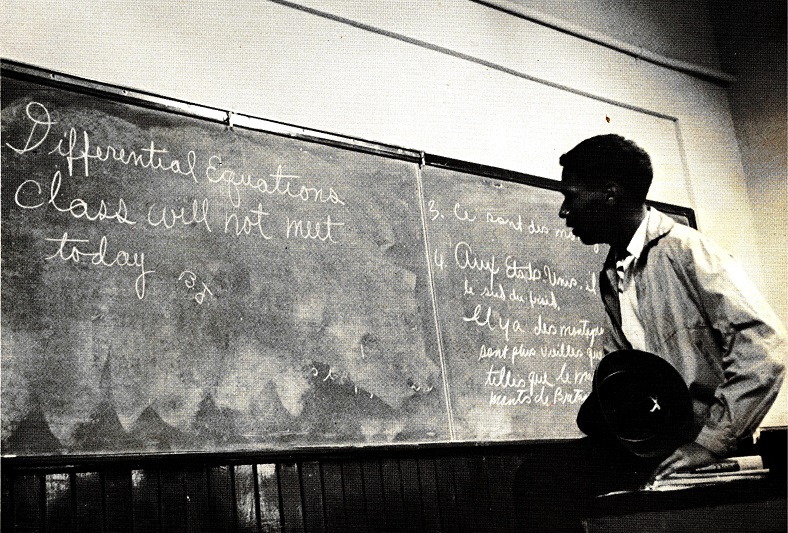 Differential Equations
class will not meet
today
3. Ce sont des
4. Aux Etats-Unis. il
le sud du
Il y a des montagne
sont plus vieilles que
telles que le